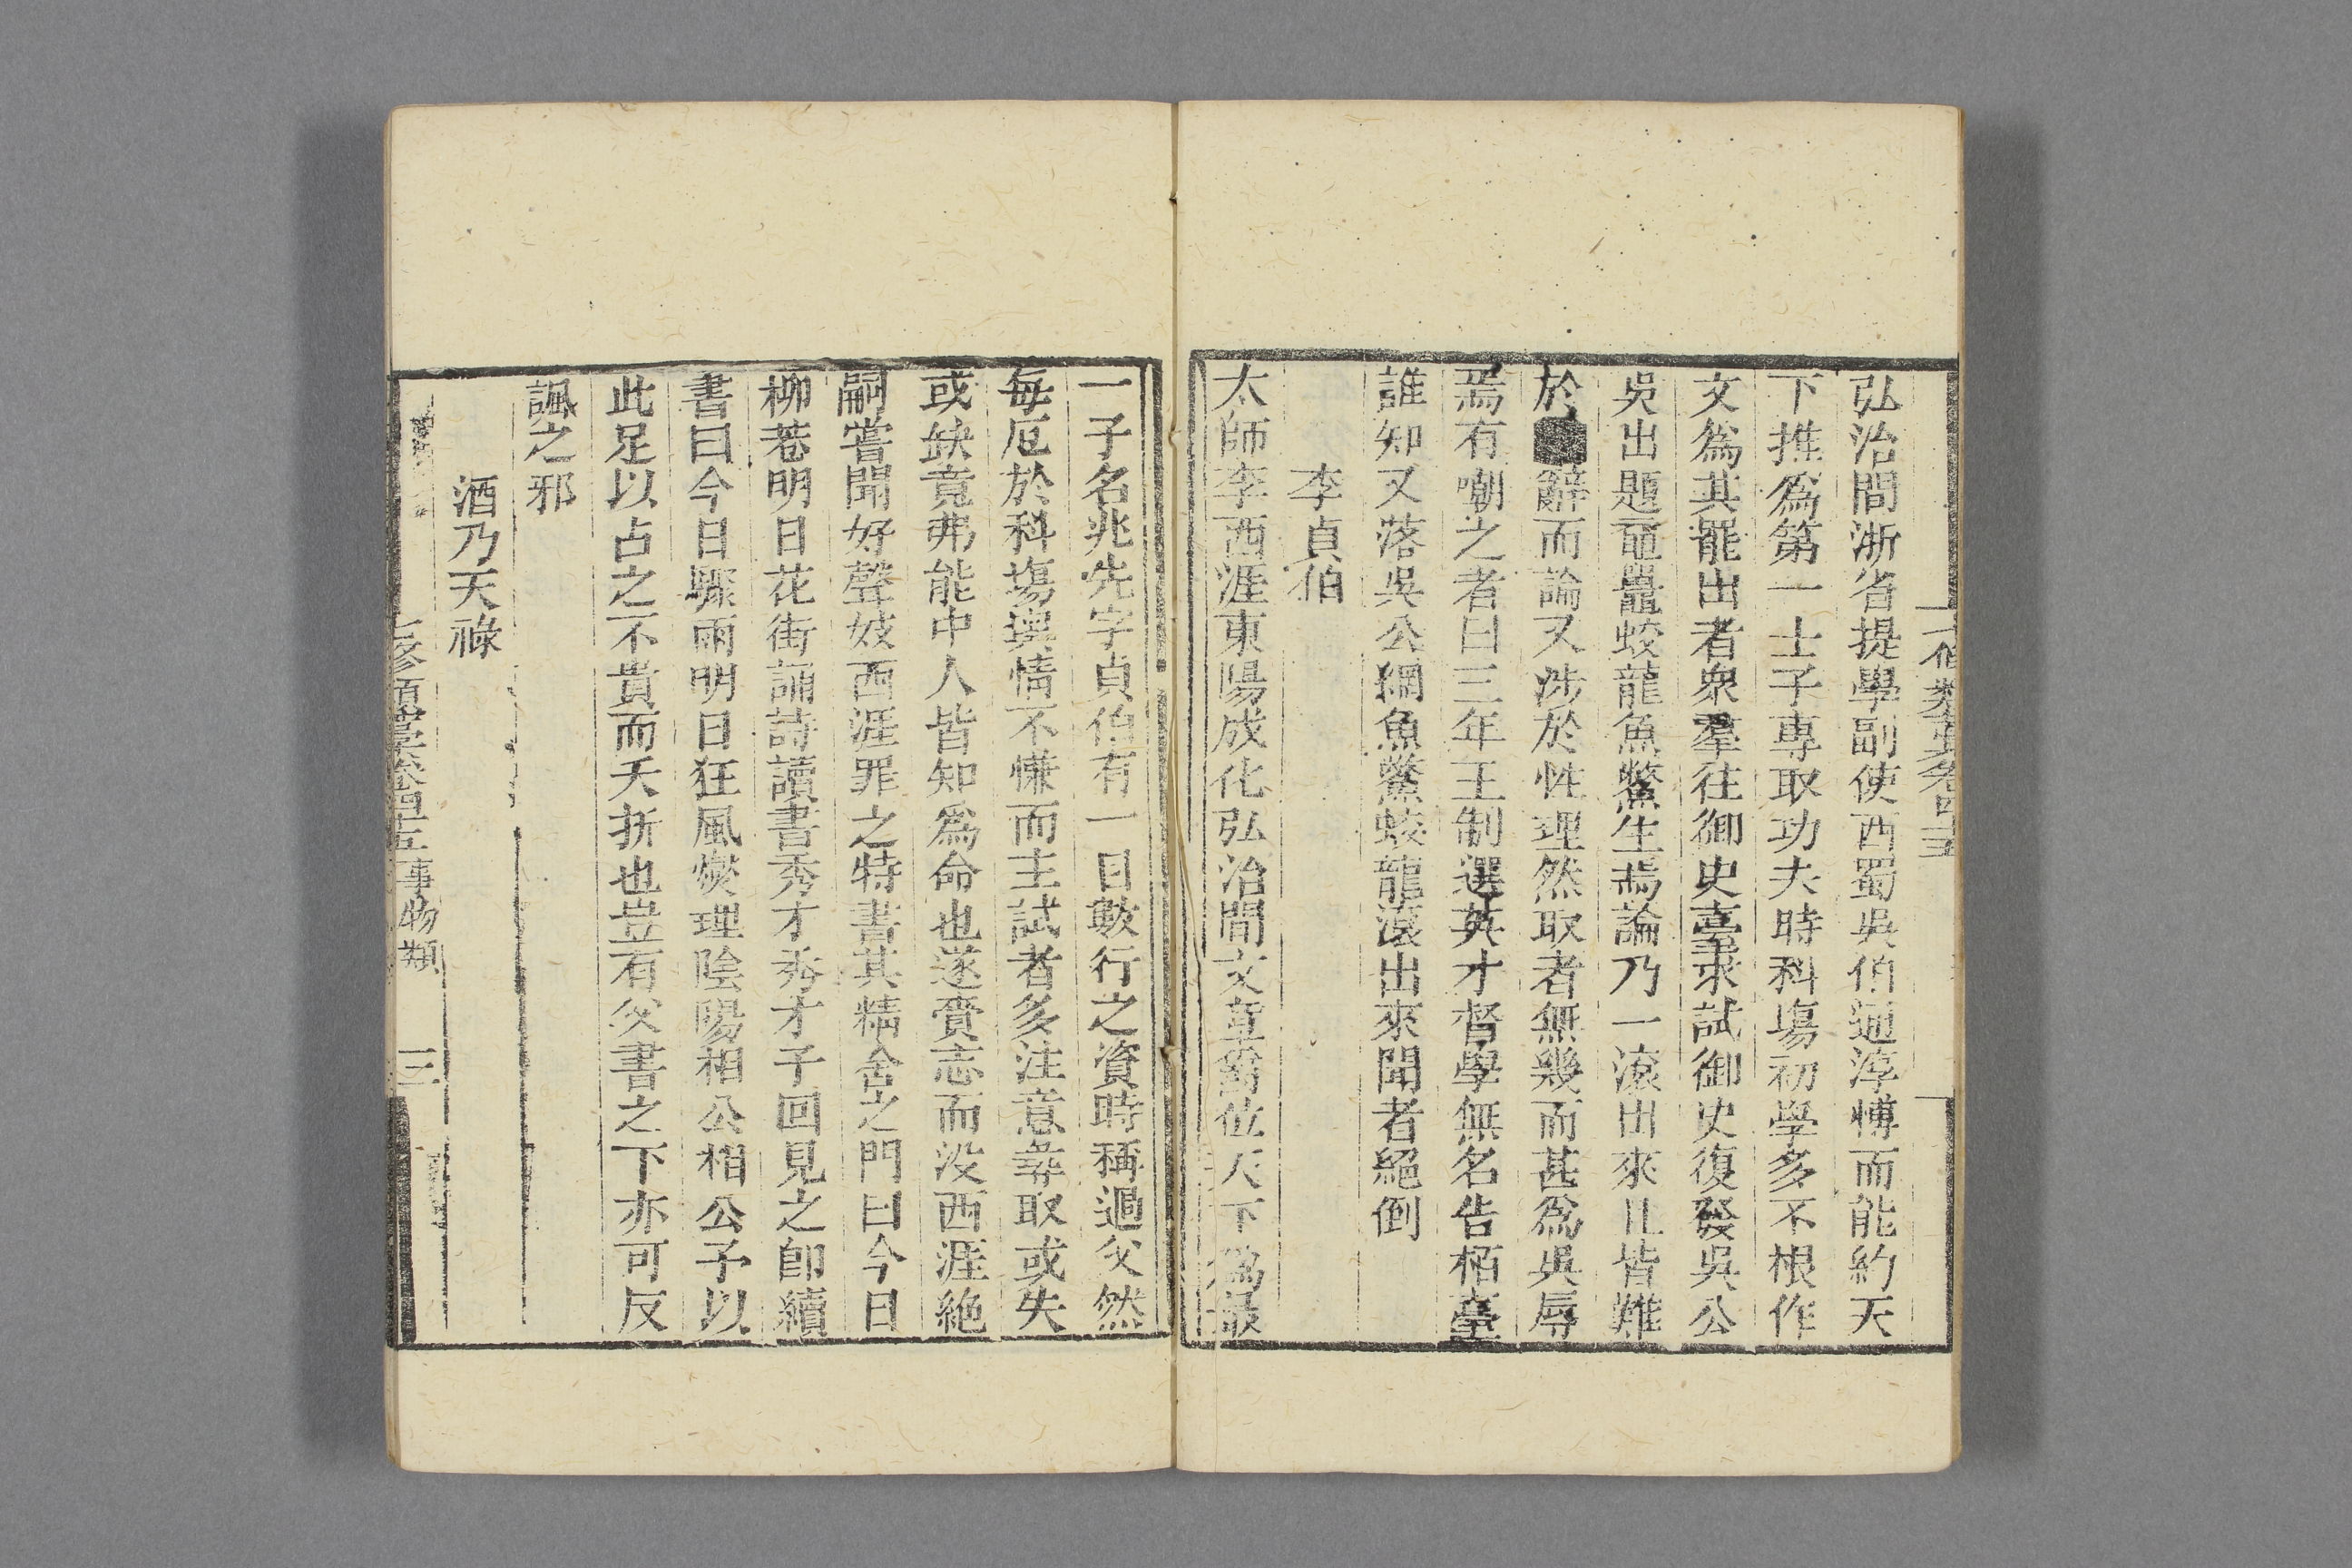 弘治間浙省提學副使西蜀吳伯通淳博而能約天
下推爲第一士子專取功夫時科塲初學多不根作
文爲其罷出者衆羣往御史臺求試御史復發吳公
吳出題黿鼉蛟龍魚鱉生焉論乃一滚出來且皆難
於辭而論又涉於性理然取者無幾而甚爲吳辱
焉有嘲之者曰三年王制選英才督學無名告栢臺
誰知又落吳公網魚鱉蛟龍滚出來聞者絕倒
李貞伯
太師李西涯東陽成化弘治間文章爵位天下爲最
一子名兆先字貞伯有一目數行之資時稱過父然
每厄於科塲輿情不慊而主試者多注意彝取或失
或缺竟弗能中人皆知爲命也遂賫志而没西涯絶
嗣嘗聞好聲妓西涯罪之特書其精舍之門曰今日
柳巷明日花街誦詩讀書秀才秀才子回見之卽續
書曰今日驟雨明日狂風燮理陰陽相公相公予以
此足以占之不貴而夭折也豈有父書之下亦可反
諷之邪
酒乃天祿
七修類藁卷四十五 事物類 三